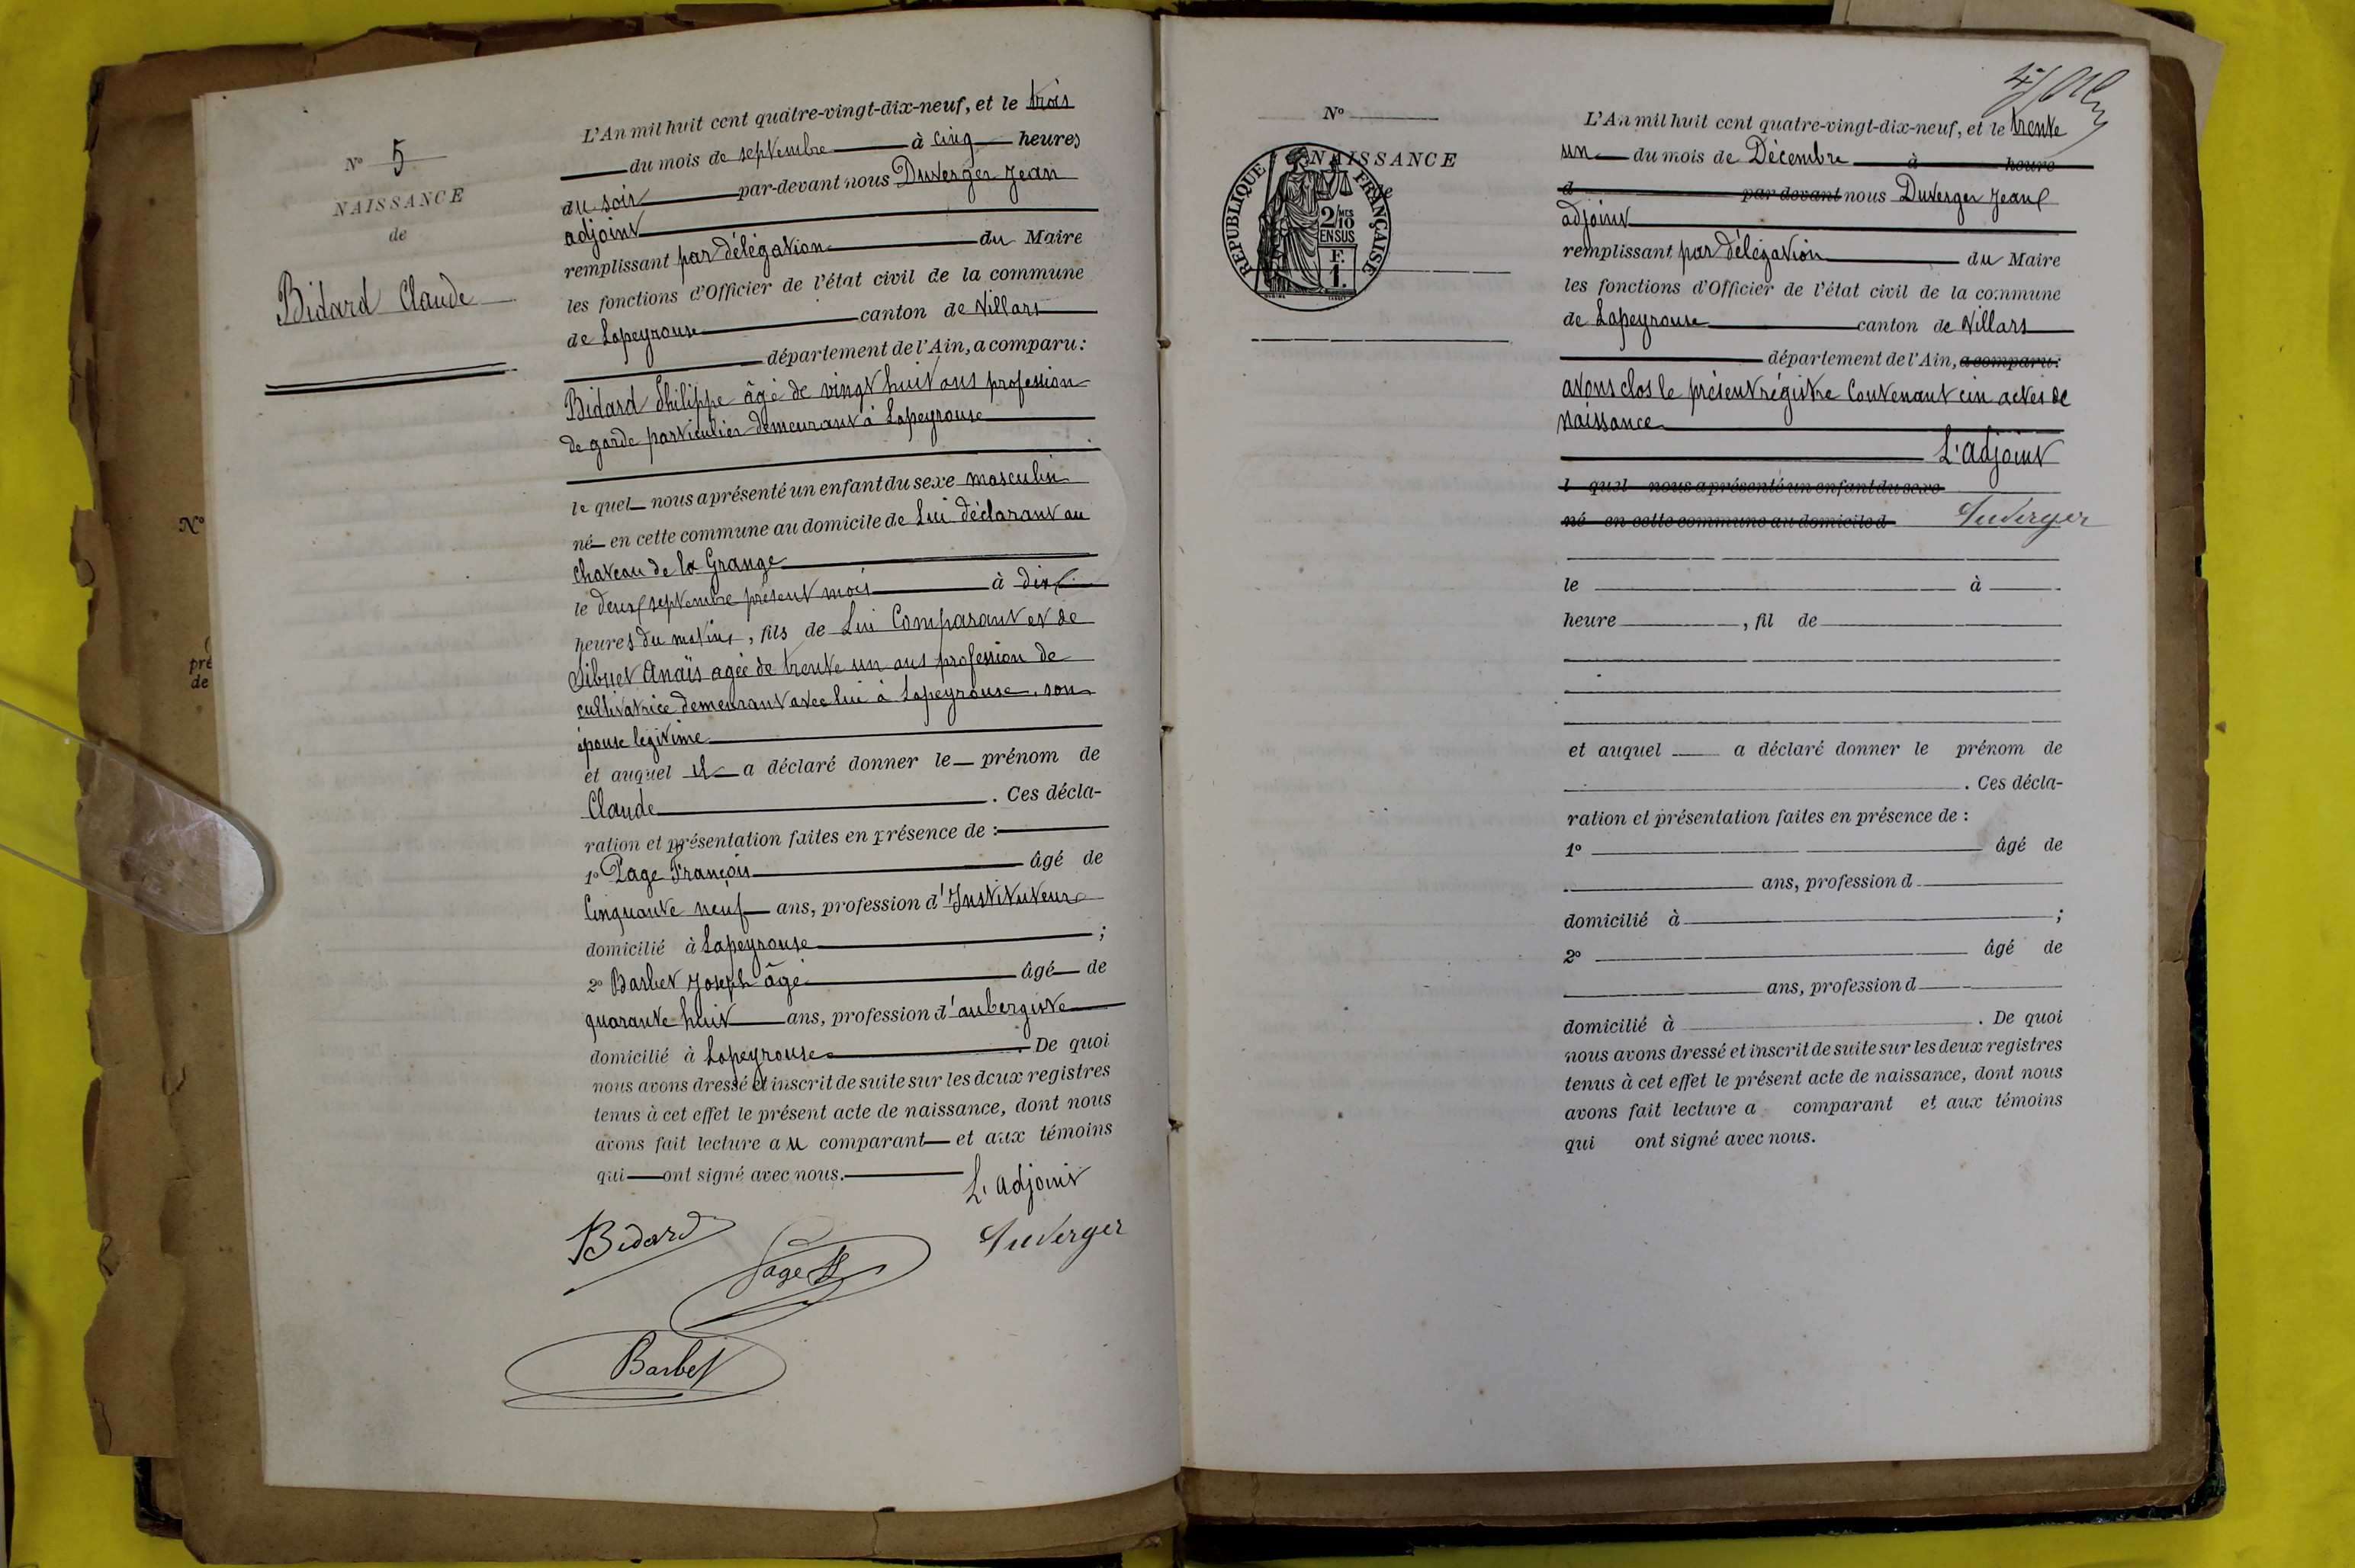 N° 5
NAISSANCE
de
Bidard Claude
L'An mil huit cent quatre-vingt-dix-neuf, et le trois
du mois de septembre à cinq heures
du soir par-devant nous Duverger Jean
adjoint
remplissant par délégation du Maire
les fonctions d'Officier de l'état civil de la commune
de Lapeyrouse canton de Villars
département de l'Ain, a comparu:
Bidard Philippe âgé de vingt huit ans profession
de garde particulier demeurant à Lapeyrouse
le quel nous a présenté un enfant du sexe masculin
né en cette commune au domicile de Lui déclarant au
chateau de la Grange
le deux septembre présent mois à dix
heures du matin, fils de Lui Comparant et de
Sibuet Anaïs agée de trente un ans profession de
cultivatrice demeurant avec lui à Lapeyrouse, son
épouse légitime
et auquel il a déclaré donner le prénom de
Claude. Ces décla-
ration et présentation faites en présence de :
1° Page François âgé de
Cinquante neuf ans, profession d'Instituteur
domicilié à Lapeyrouse ;
2° Barbet Joseph âgé âgé de
quarante huit ans, profession d'aubergiste
domicilié à Lapeyrouse. De quoi
nous avons dressé et inscrit de suite sur les deux registres
tenus à cet effet le présent acte de naissance, dont nous
avons fait lecture au comparant et aux témoins
qui ont signé avec nous.
L'adjoint
Bidard
Page
Duverger
Barbet
N°
pré
de
N°
NAISSANCE
de
REPUBLIQUE FRANÇAISE
2/10 MES
EN SUS
F.
1.
L'An mil huit cent quatre-vingt-dix-neuf, et le trente
un du mois de Décembre à heure
d par devant nous Duverger Jean
adjoint
remplissant par délégation du Maire
les fonctions d'Officier de l'état civil de la commune
de Lapeyrouse canton de Villars
département de l'Ain, a comparu:
avons clos le présent régistre Contenant cin actes de
naissance
L'adjoint
l quel nous a présenté un enfant du sexe
né en cette commune au domicile d
Duverger
le à
heure , fil de
et auquel a déclaré donner le prénom de
. Ces décla-
ration et présentation faites en présence de :
1° âgé de
ans, profession d
domicilié à ;
2° âgé de
ans, profession d
domicilié à . De quoi
nous avons dressé et inscrit de suite sur les deux registres
tenus à cet effet le présent acte de naissance, dont nous
avons fait lecture a comparant et aux témoins
qui ont signé avec nous.